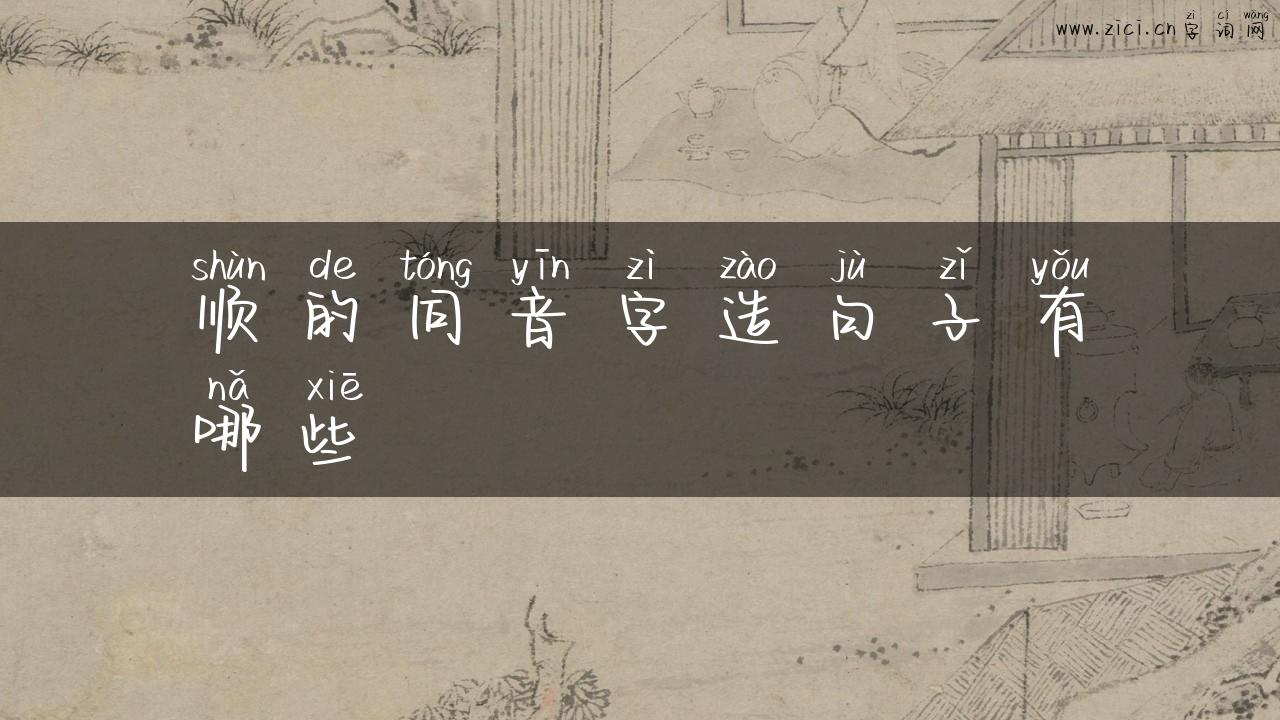 zì cí wǎng
www.zici.cn 字 词 网
shùn de tóng yīn zì zào jù zǐ yǒu
顺 的 同 音 字 造 句 子 有
nǎ xiē
哪 些